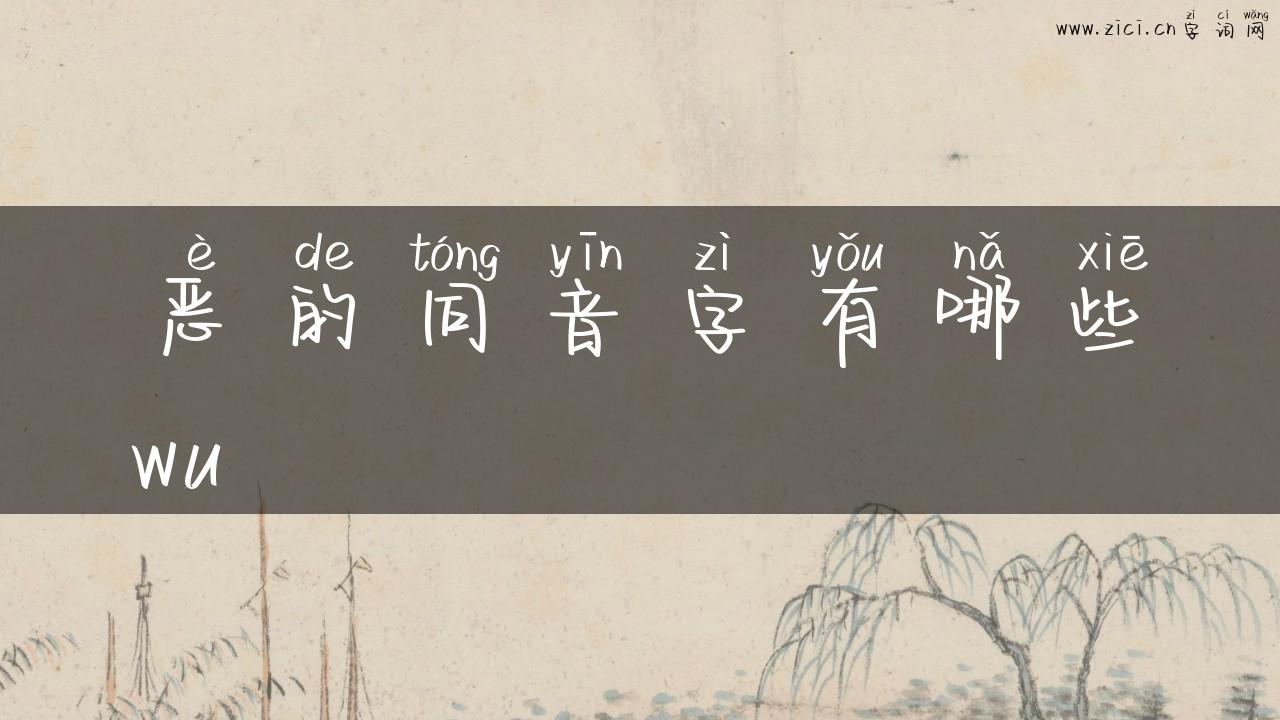 zì cí wǎng
www.zici.cn 字 词 网
è de tóng yīn zì yǒu nǎ xiē
恶 的 同 音 字 有 哪 些
wu